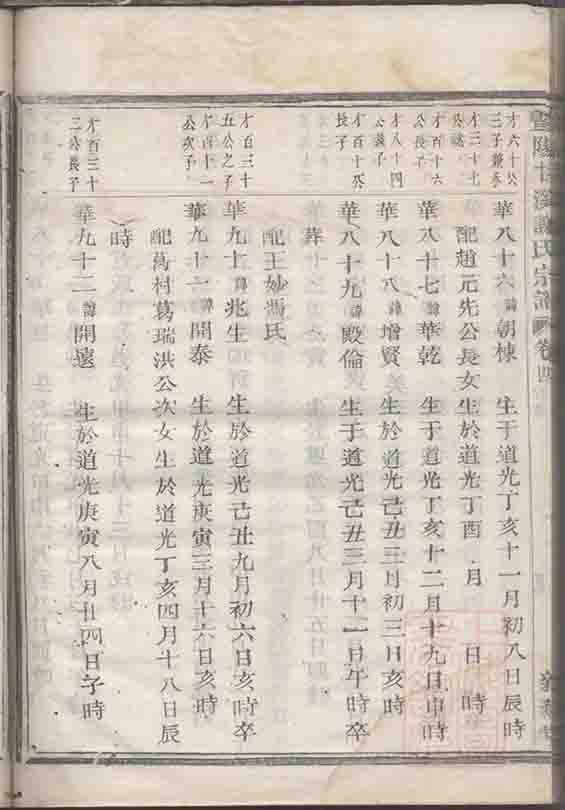 暨陽
溪謝氏宗譜
卷四
才六十公
三子兼承
才三十七
公
華八十六諱朝棟 生于道光丁亥十一月初八日辰時
配趙元先公長女生於道光丁酉 月 日 時
才百十六
公長子
華八十七諱華乾 生于道光丁亥十二月十九日申時
才八十四
公長子
華八十八諱增賢 生於道光己丑三月初三日亥時
才百十
長子
華八十九諱殿倫 生于道光己丑三月十一日午時卒
葬
配王妙馮氏
才百三十
五公之子
華九十諱兆生 生於道光己丑九月初六日亥時卒
才百十一
公次子
華九十一諱開泰 生於道光庚寅三月十六日亥時
配葛村葛瑞洪公次女生於道光丁亥四月十八日辰
時
才百三十
二公長子
華九十二諱開遠 生於道光庚寅八月廿四日子時